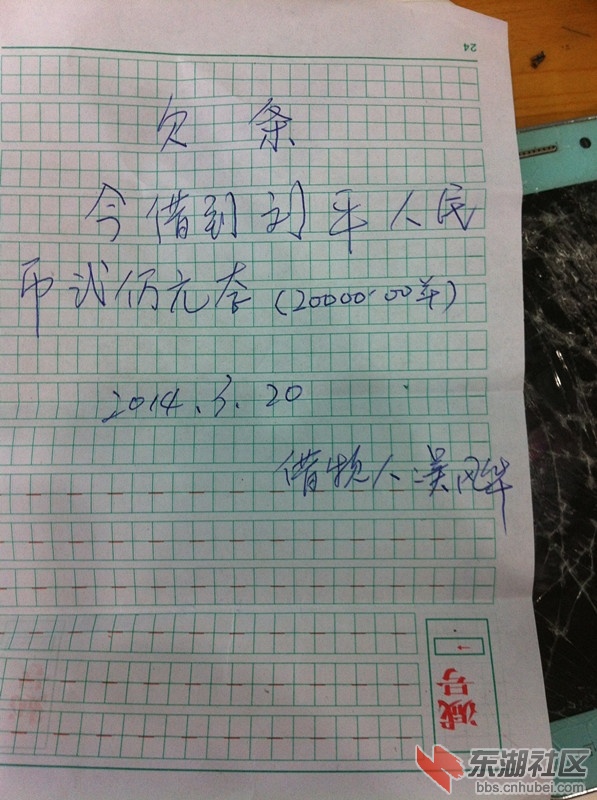 24
欠 条
今借到刘平人民
币贰仟元李(20000.00年)
2014.3.20
借款人:吴风华
诚号
东湖社区
bbs.cnhubei.com